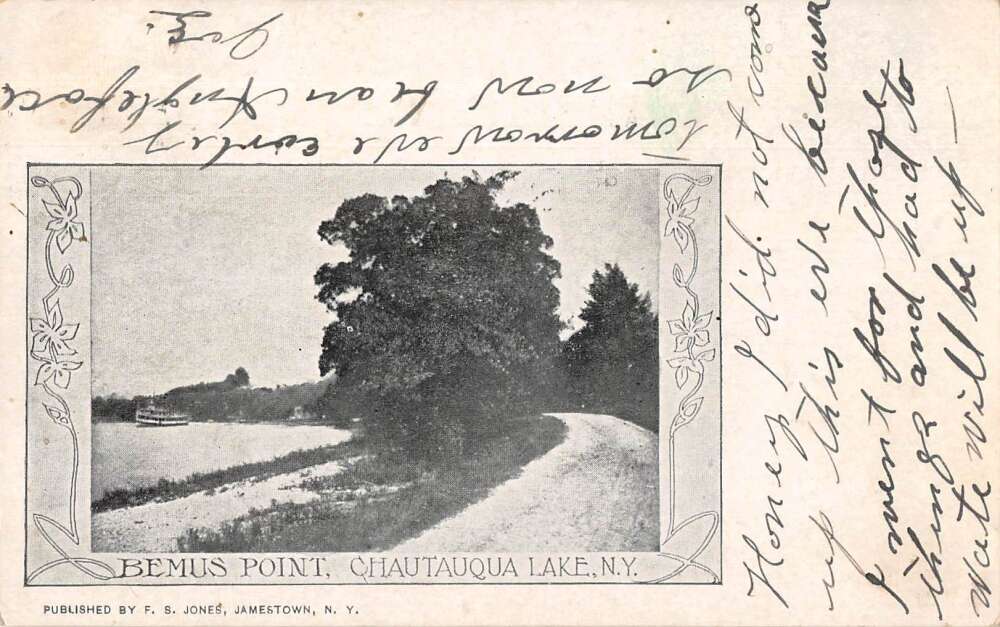 Honey I did. not come
up this eve because
I went for those
things and had to
wate will be up —
tomorrow eve earley
so now be an Angleface
BEMUS POINT, CHAUTAUQUA LAKE, N.Y.
PUBLISHED BY F. S. JONES, JAMESTOWN, N. Y.